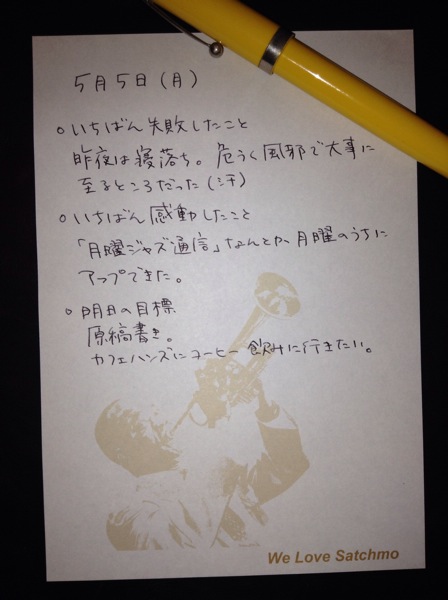 5月5日(月)
○いちばん失敗したこと
昨夜は寝落ち。危うく風邪で大事に
至るところだった(汗)
○いちばん感動したこと
「月曜ジャズ通信」なんとか月曜のうちに
アップできた。
○明日の目標
原稿書き。
カフェハンズにコーヒー飲みに行きたい。
We Love Satchmo